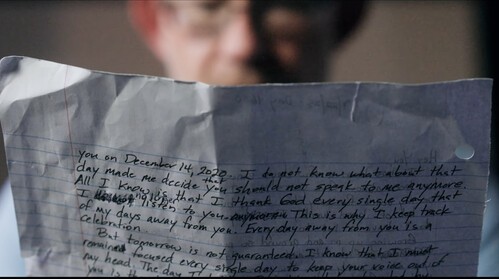 you on December 14, 2020. I do not know what about that
day made me decide that you should not speak to me anymore.
All I know is that I thank God every single day that
I listen to you. This is why I keep track
of my days away from you. Every day away from you is a
celebration.
But tomorrow is not guaranteed. I know that I must
remain focused every single day to keep your voice out of
my head. The day I
you is th